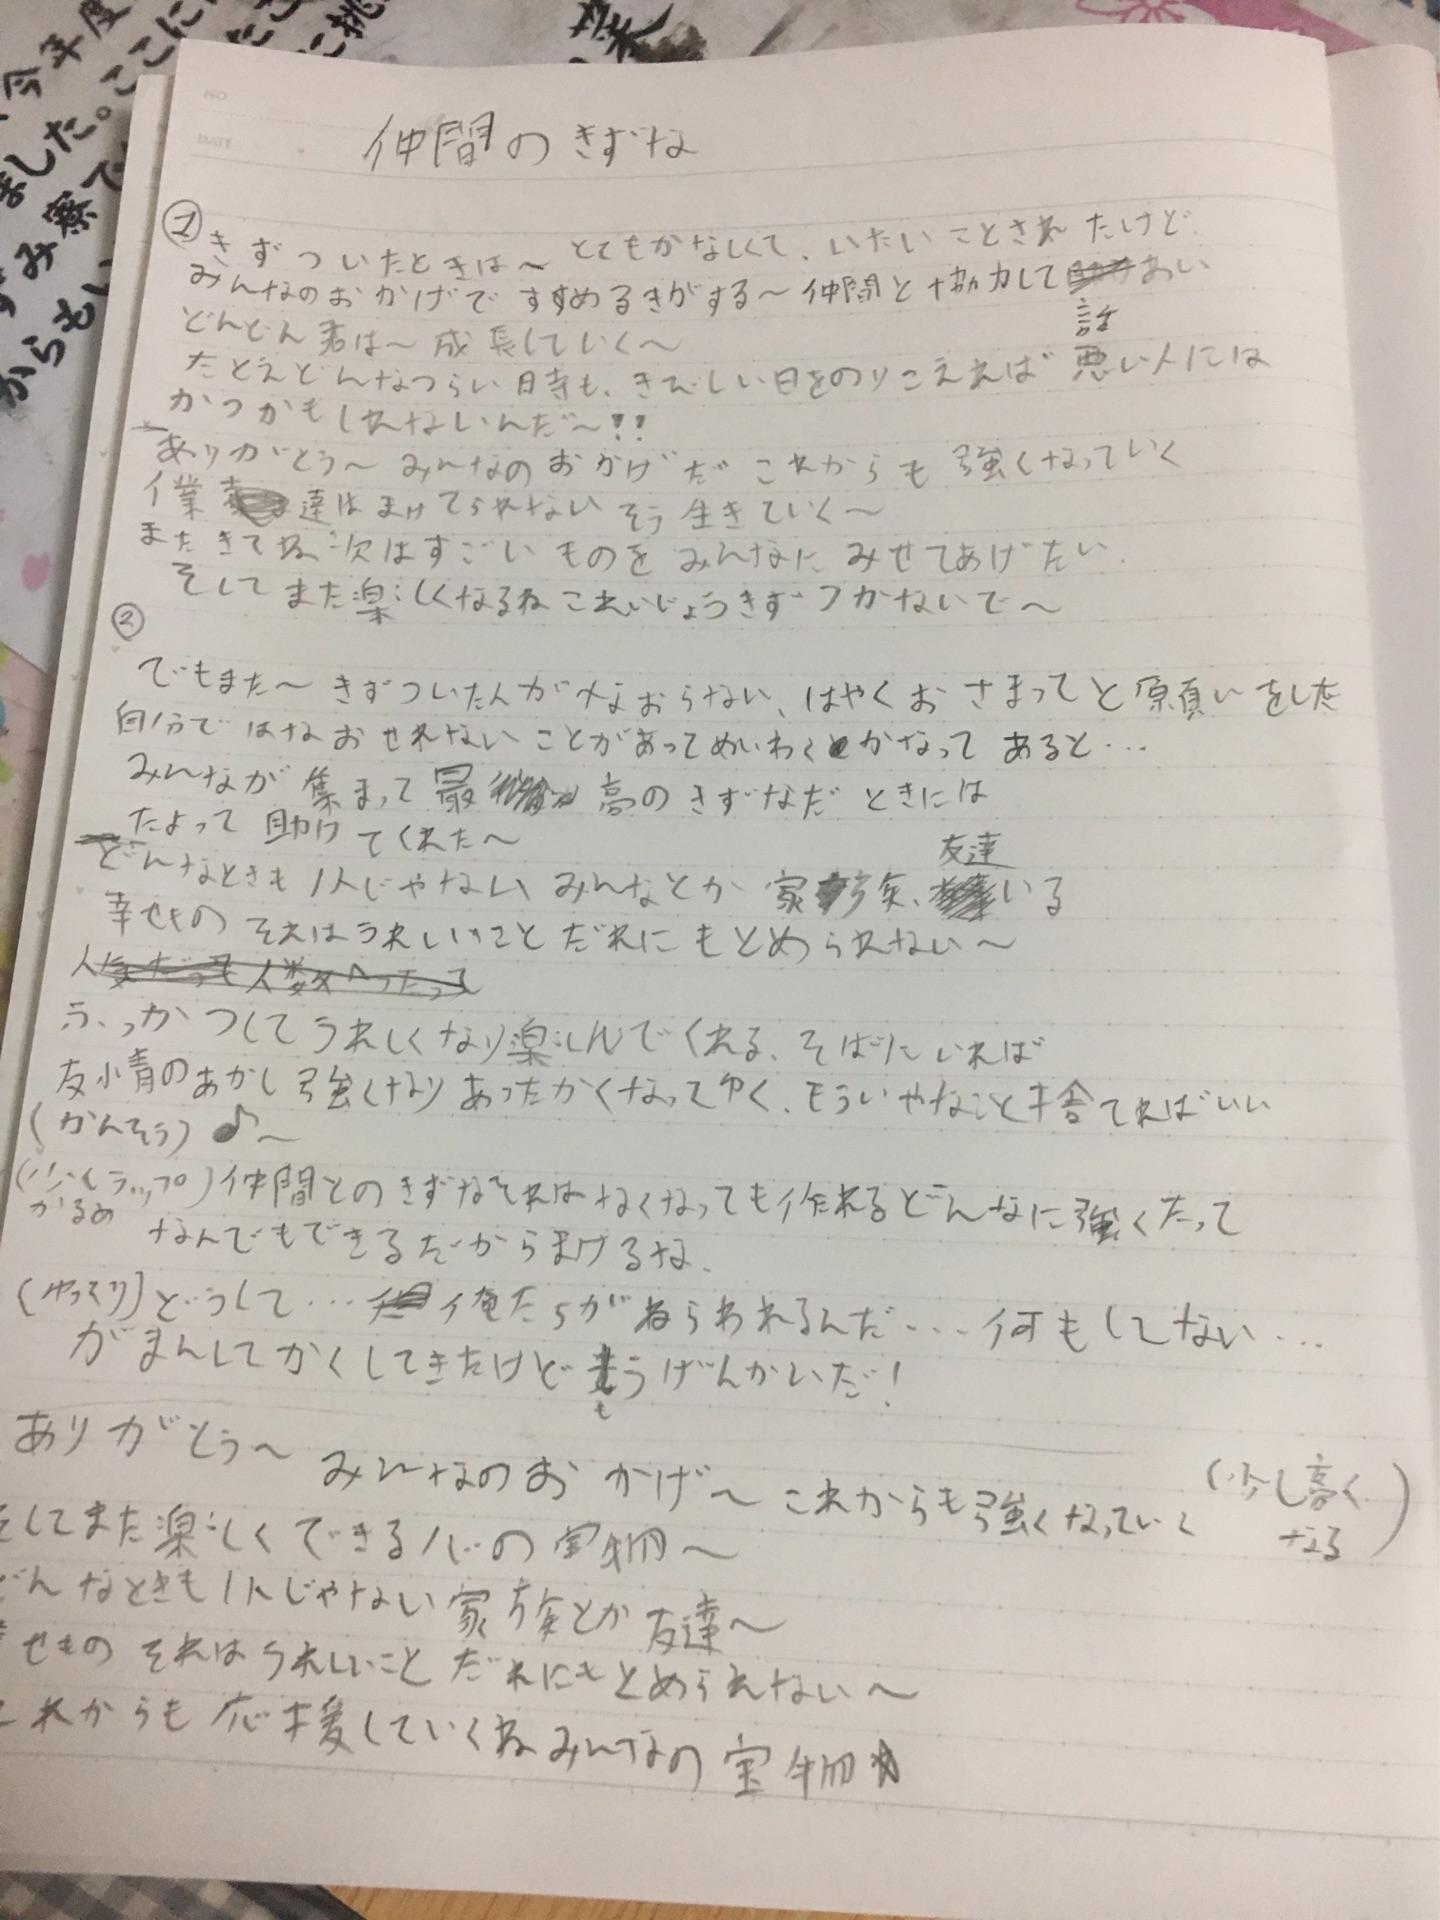 今年度
ました。ここに
NO
DATE
仲間のきずな
① きずついたときは～ とてもかなしくて、いたいことされたけど、
みんなのおかげですすめるきがする～仲間と協力して話あい
どんどん君は～成長していく～
たとえどんなつらい時も、きびしい日をのりこえれば悪い人には
かつかもしれないんだ～!!
ありがとう～ みんなのおかげだ これからも 強くなっていく
達はまけてられない そう生きていく～
またきてね 次はすごいものを みんなに みせてあげたい
そしてまた楽しくなるね これいじょうきずつかないで～
②
でもまた～ きずついた人がなおらない、はやくおさまってと願いをした
自分ではなおせれないことがあってめいわくとかなってあると…
みんなが集まって最高のきずなだ ときには
たよって助けてくれた～
どんなときも1人じゃない みんなとか 家族、友達いる
幸せもの それはうれしいこと だれにもとめられない～
人気だっても人数へったって
ふっかつしてうれしくなり楽しんでくれる、そばにいれば
友情のあかし強くなりあったかくなってゆく、もういやなこと捨てればいい
(かんそう)♪～
(少しラップ)仲間とのきずなそれはなくなっても作れるどんなに強くたって
かるめ なんでもできるだからまけるな、
(ゆっくり)どうして… 俺たちがねらわれるんだ…何もしてない…
がまんしてかくしてきたけどもうげんかいだ!
ありがとう～ みんなのおかげ～これからも強くなっていく(少し高くなる)
そしてまた楽しくできる心の宝物～
どんなときも1人じゃない家族とか友達～
せもの それはうれしいこと だれにもとめられない～
これからも応援していくね みんなの宝物☆